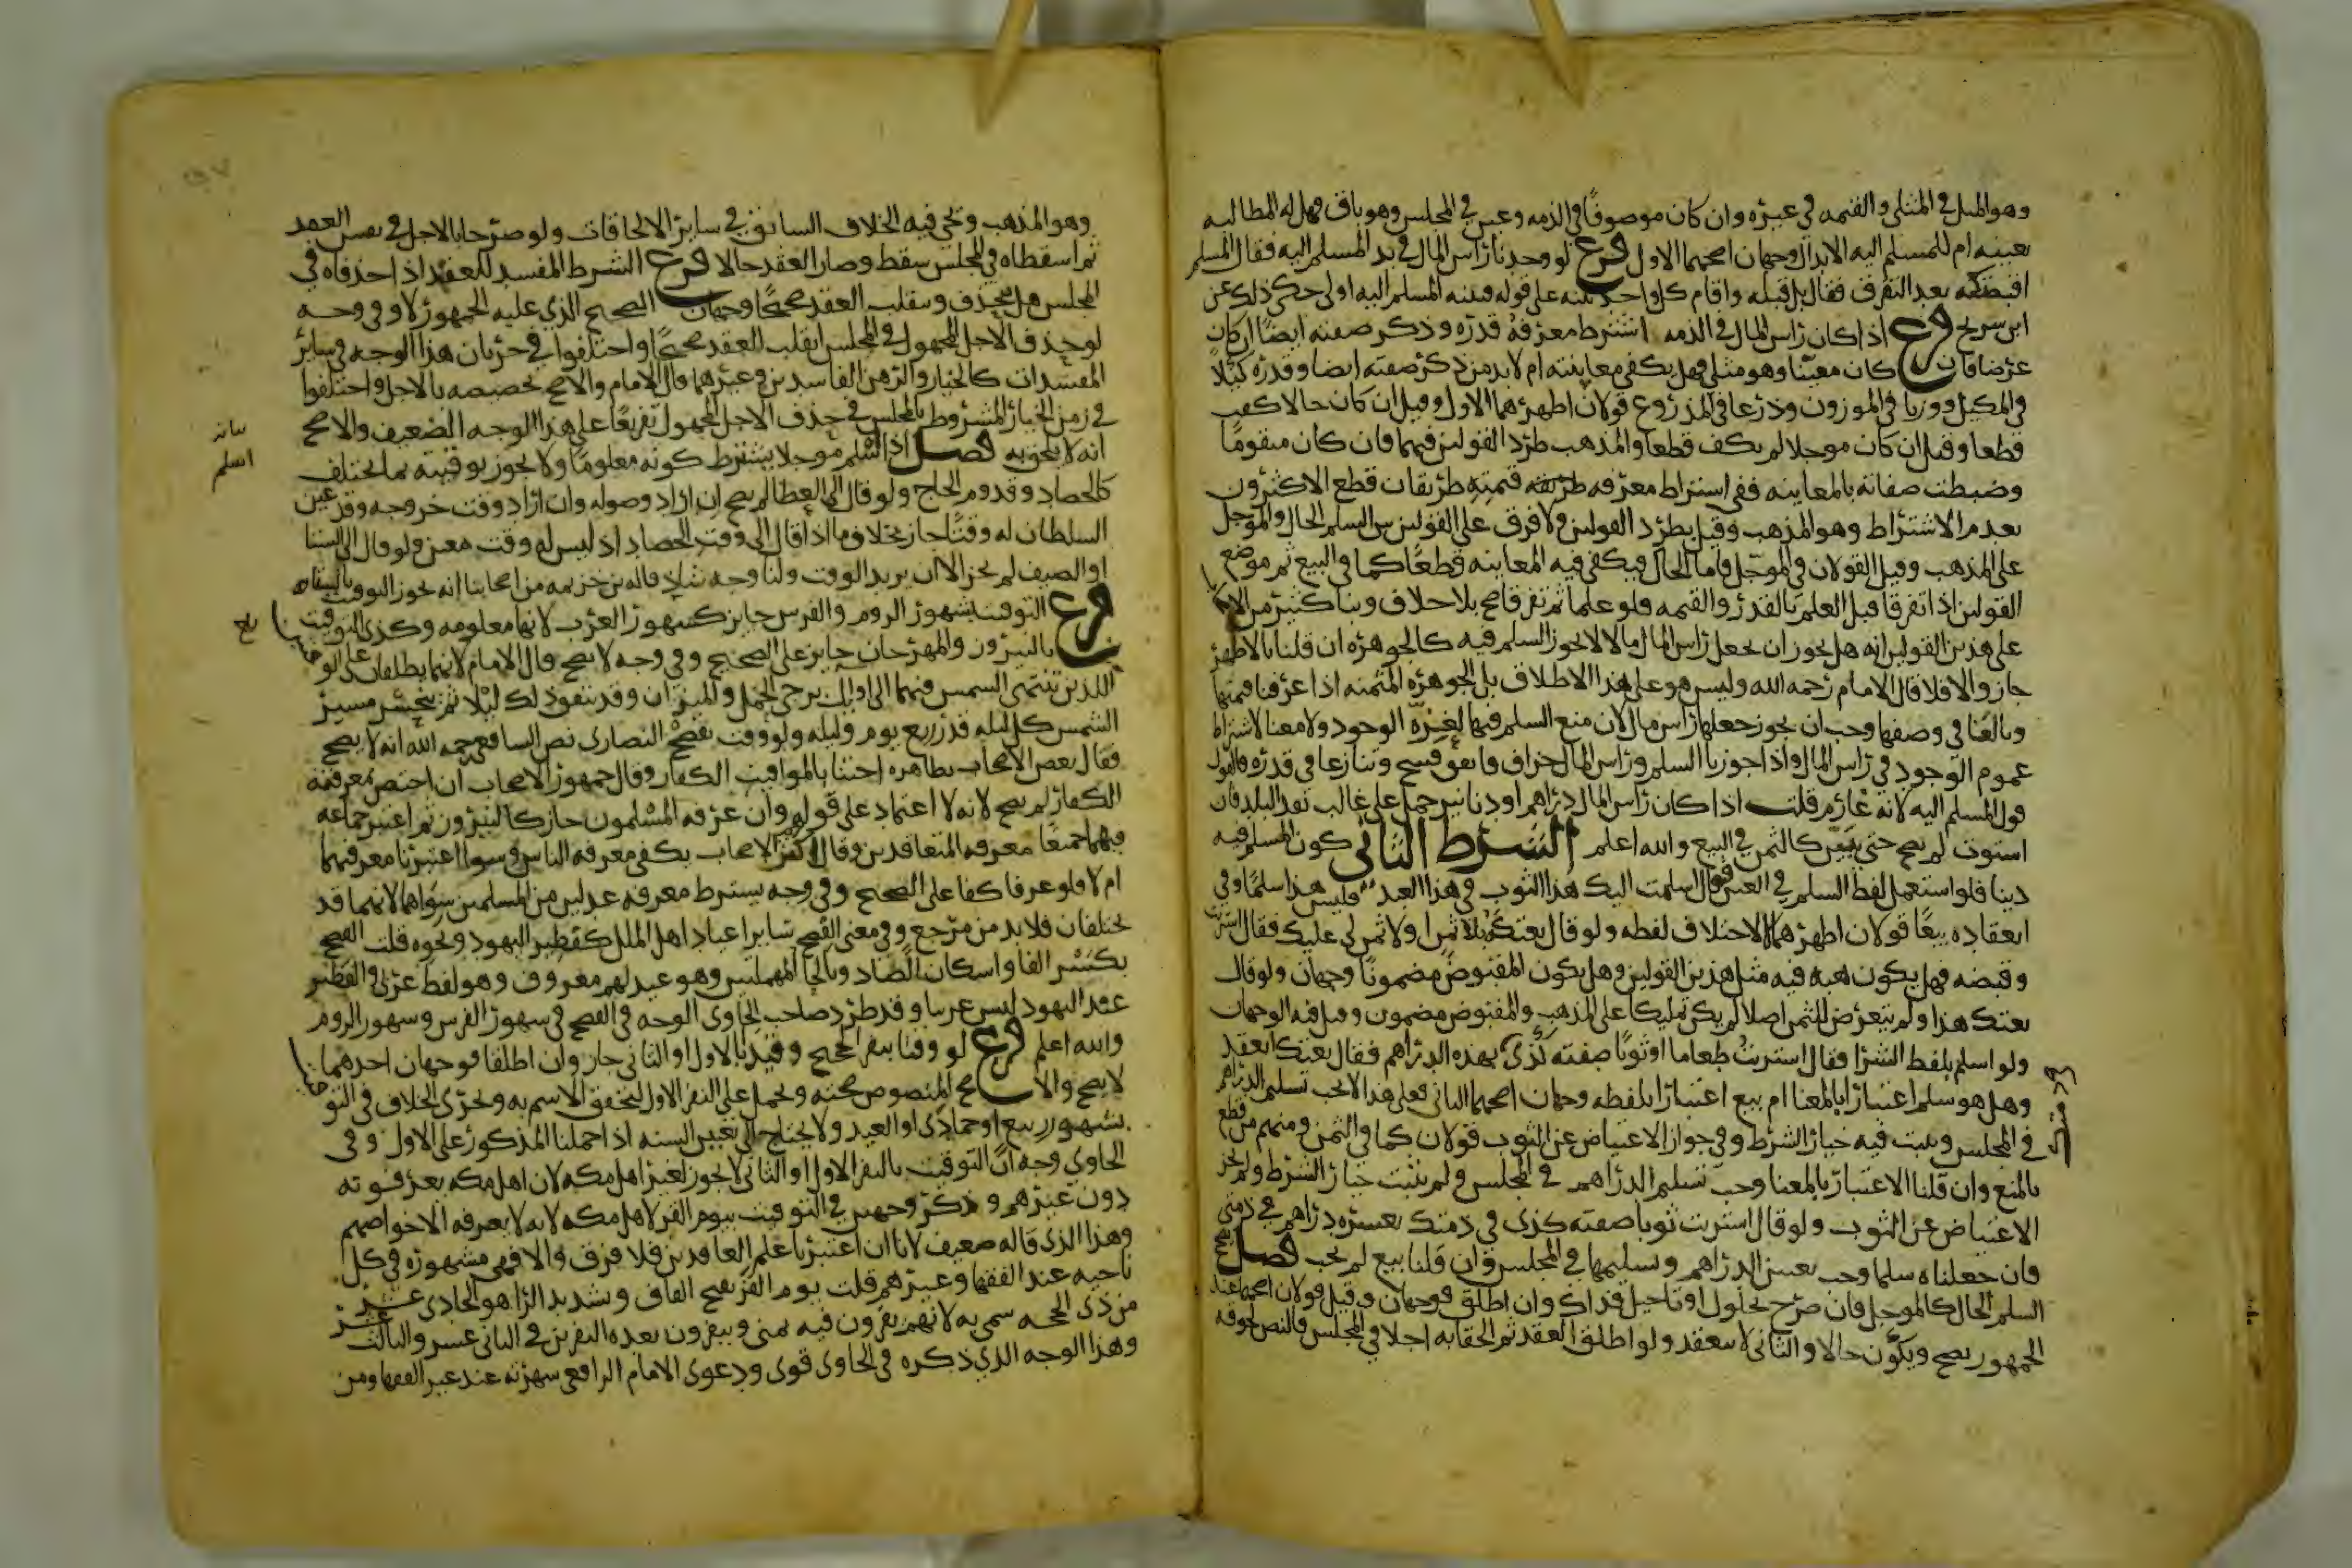 وهو المثل في المثلي والقيمه في غيره وان كان موصوفا في الذمه وعين في المجلس وهو باق فهل له المطالبه
بعينه ام للمسلم اليه الابدال وجهان اصحهما الاول فرع لو وجدنا راس المال في يد المسلم اليه فقال المسلم
اقبضتكه بعد التفرق فقال بل قبله واقام كل واحد بينه على قوله فبينه المسلم اليه اولى حكي ذلك عن
ابن سريج فرع اذا كان راس المال في الذمه اشترط معرفة قدره وذكر صفته ايضا ان كان
عرضا فان كان معينا وهو مثلي فهل يكفي معاينته ام لابد من ذكر صفته ايضا وقدره كيلا
في المكيل ووزنا في الموزون وذرعا في المذروع قولان اظهرهما الاول وقيل ان كان حالا كفت
قطعا وقيل ان كان موجلا لم يكف قطعا والمذهب طرد القولين فيهما فان كان متقوما
وضبطت صفاته بالمعاينه ففي اشتراط معرفه قيمته طريقان قطع الاكثرون
بعدم الاشتراط وهو المذهب وقيل بطرد القولين ولا فرق على القولين بين السلم الحال والموجل
على المذهب وقيل القولان في الموجل فاما الحال فيكفي فيه المعاينه قطعا كما في البيع ثم موضع
القولين اذا تفرقا قبل العلم بالقدر والقيمه فلو علما ثم تفرقا صح بلا خلاف وبنا كثير من
على هذين القولين انه هل يجوز ان يجعل راس المال ما لا يجوز السلم فيه كالجوهره ان قلنا بالاظهر
جاز والا فلا قال الامام رحمه الله وليس هو على هذا الاطلاق بل الجوهره المثمنه اذا عرفا قيمتها
وبالغا في وصفها وجب ان يجوز جعلها راس مال لان منع السلم فيها لعزة الوجود ولا معنا لاشتراط
عموم الوجود في راس المال واذا جوزنا السلم وراس المال جزاف واتفق فسخ وتنازعا في قدره فالقول
قول المسلم اليه لانه غارم قلت اذا كان راس المال دراهم او دنانير حمل على غالب نقد البلد فان
استوت لم يصح حتى يبين كالثمن في البيع والله اعلم الشرط الثاني كون المسلم فيه
دينا فلو استعمل لفظ السلم في العين فقال اسلمت اليك هذا الثوب في هذا العبد فليس هذا سلما وفي
انعقاده بيعا قولان اظهرهما لا لاختلاف لفظه ولو قال بعتكه بلا ثمن او لا ثمن لي عليك فقال اشتريت
وقبضه فهل يكون هبه فيه مثل هذين القولين وهل يكون المقبوض مضمونا وجهان ولو قال
بعتك هذا ولم يتعرض للثمن اصلا لم يكن تمليكا على المذهب والمقبوض مضمون وقيل فيه الوجهان
ولو اسلم بلفظ الشرا فقال اشتريت طعاما او ثوبا صفته كذى بهذه الدراهم فقال بعتك انعقد
وهل هو سلم اعتبارا بالمعنا ام بيع اعتبارا بلفظه وجهان اصحهما الثاني فعلى هذا لا يجب تسليم الدراهم
في المجلس ويثبت فيه خيار الشرط وفي جواز الاعتياض عن الثوب قولان كما في الثمن ومنهم من قطع
بالمنع وان قلنا الاعتبار بالمعنا وجب تسليم الدراهم في المجلس ولم يثبت خيار الشرط ولم يجز
الاعتياض عن الثوب ولو قال اشتريت ثوبا صفته كذى في ذمتك بعشره دراهم في ذمتي
فان جعلناه سلما وجب تعيين الدراهم وتسليمها في المجلس وان قلنا بيع لم يجب فصل يصح
السلم الحال كالموجل فان صرح بحلول او تاجيل فذاك وان اطلق فوجهان وقيل قولان اصحهما عند
الجمهور يصح ويكون حالا والثاني لا ينعقد ولو اطلق العقد ثم الحقا به اجلا في المجلس فالنص لحوقه
وهو المذهب ويجي فيه الخلاف السابق في ساير الالحاقات ولو صرحا بالاجل في نفس العقد
ثم اسقطاه في المجلس سقط وصار العقد حالا فرع الشرط المفسد للعقد اذا حذفاه في
المجلس هل ينحذف وينقلب العقد صحيحا وجهان الصحيح الذي عليه الجمهور لا وفي وجه
لو حذف الاجل المجهول في المجلس انقلب العقد صحيحا واختلفوا في جريان هذا الوجه في ساير
المفسدات كالخيار والرهن الفاسدين وغيرهما قال الامام والاصح تخصيصه بالاجل واختلفوا
في زمن الخيار المشروط بالمجلس في حذف الاجل المجهول تفريعا على هذا الوجه الضعيف والاصح
انه لا يلحق به فصل اذا اسلم موجلا يشترط كونه معلوما ولا يجوز توقيته بما يختلف
كالحصاد وقدوم الحاج ولو قال الى العطا لم يصح ان اراد وصوله وان اراد وقت خروجه وقد عين
السلطان له وقتا جاز بخلاف ما اذا قال الى وقت الحصاد اذ ليس له وقت معين ولو قال الى الشتا
او الصيف لم يجز الا ان يريد الوقت ولنا وجه شاذ قاله بن خزيمه من اصحابنا انه يجوز التوقيت
فرع التوقيت بشهور الروم والفرس جايز كشهور العرب لانها معلومه وكذى التوقيت
بالنيرون والمهرجان جايز على الصحيح وفي وجه لا يصح قال الامام لانهما يطلقان على الوقتين
اللذين تنتهي الشمس فيهما الى اوايل برجي الحمل والميزان وقد يتفق ذلك ليلا ثم ينحبس مسير
الشمس كل ليله قدر ربع يوم وليله ولو وقت بفصح النصارى نص الشافعي رحمه الله انه لا يصح
فقال بعض الاصحاب بظاهره اجتنابا لمواقيت الكفار وقال جمهور الاصحاب ان اختص بمعرفته
الكفار لم يصح لانه لا اعتماد على قولهم وان عرفه المسلمون جاز كالنيرون ثم اعتبر جماعه
فيهما جميعا معرفه المتعاقدين وقال اكثر الاصحاب يكفي معرفه الناس وسوا اعتبرنا معرفتهما
ام لا فلو عرفا كفا على الصحيح وفي وجه يشترط معرفه عدلين من المسلمين سواهما لانهما قد
يختلفان فلا بد من مرجع وفي معنى الفصح ساير اعياد اهل الملل كفطير اليهود ونحوه قلت الفصح
بكسر الفا واسكان الصاد وبالحا المهملتين وهو عيد لهم معروف وهو لفظ عربي والفطير
عيد اليهود ليس عربيا وقد طرد صاحب الحاوي الوجه في الفصح في شهور الفرس وشهور الروم
والله اعلم فرع لو وقتا بنفر الحجيج وقيد بالاول او الثاني جاز وان اطلقا فوجهان احدهما
لا يصح والاصح المنصوص صحته ويحمل على النفر الاول لتحقق الاسم به ويجرى الخلاف في التوقيت
بشهور ربيع او جمادى او العيد ولا يحتاج الى تعيين السنه اذا حملنا المذكور على الاول وفي
الحاوي وجه ان التوقيت بالنفر الاول او الثاني لا يجوز لغير اهل مكه لان اهل مكه يعرفونه
دون غيرهم وذكر وجهين في التوقيت بيوم القر لاهل مكه لانه لا يعرفه الا خواصهم
وهذا الذى قاله ضعيف لانا ان اعتبرنا علم العاقدين فلا فرق والا فهي مشهوره في كل
ناحيه عند الفقها وغيرهم قلت يوم القر بفتح القاف وتشديد الرا هو الحادى عشر
من ذى الحجه سمي به لانهم يقرون فيه بمنى وينفرون بعده النفرين في الثاني عشر والثالث عشر
وهذا الوجه الذي ذكره في الحاوى قوى ودعوى الامام الرافعي شهرته عند غير الفقها ومن